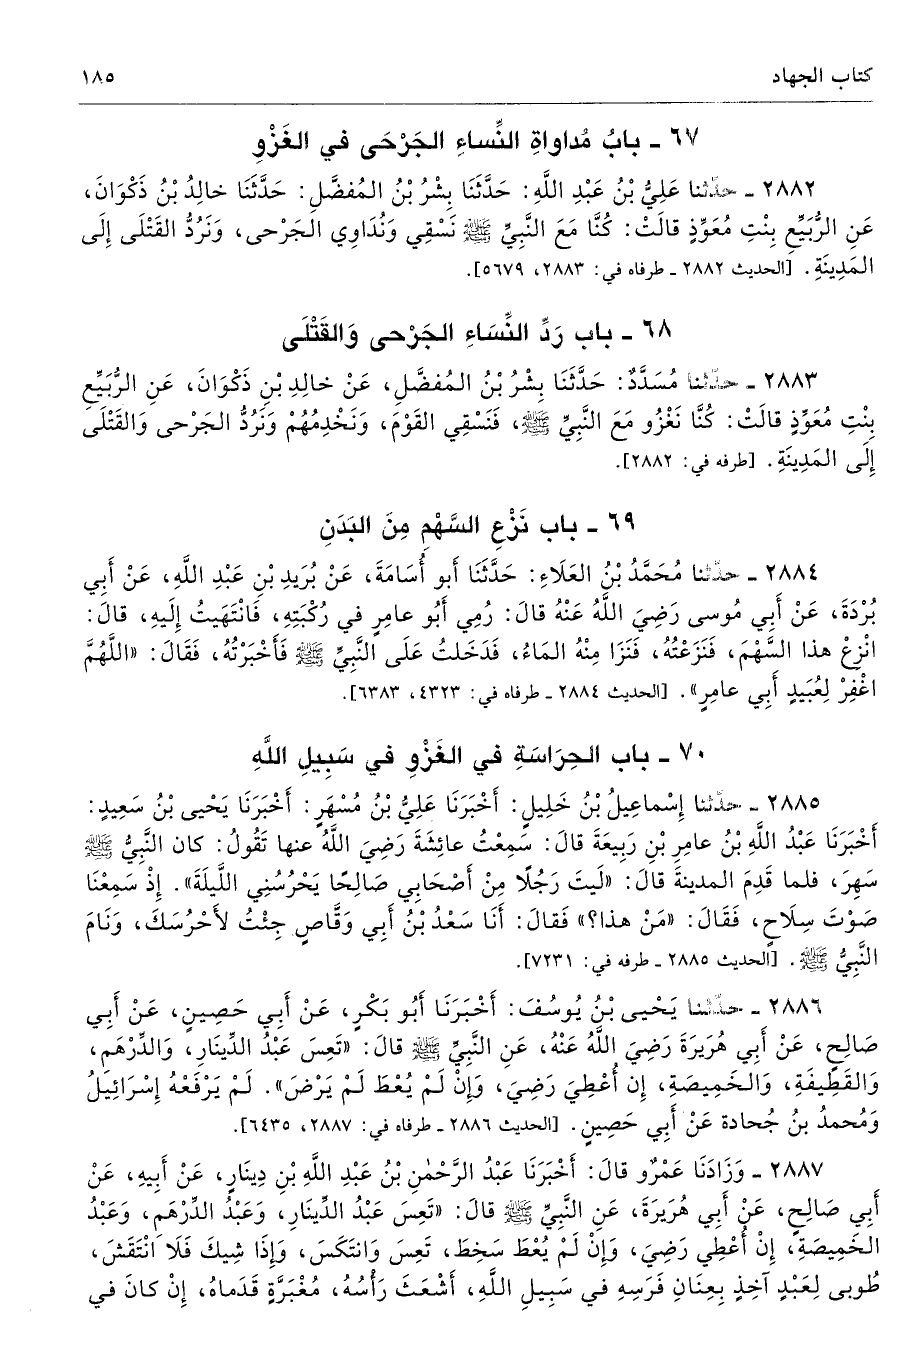 كتاب الجهاد ١٨٥
٦٧ ـ بابُ مُداواةِ النِّساءِ الجَرْحَى في الغَزْوِ
٢٨٨٢ ـ حدّثنا عَلِيُّ بْنُ عَبْدِ اللَّهِ: حَدَّثَنَا بِشْرُ بْنُ المُفضَّلِ: حَدَّثَنَا خالِدُ بْنُ ذَكْوَانَ،
عَنِ الرُّبَيِّعِ بِنْتِ مُعَوِّذٍ قالَتْ: كُنَّا مَعَ النَّبِيِّ ﷺ نَسْقِي وَنُدَاوِي الجَرْحى، وَنَرُدُّ القَتْلَى إِلَى
المَدِينَةِ. [الحديث ٢٨٨٢ ـ طرفاه في: ٢٨٨٣، ٥٦٧٩].
٦٨ ـ باب رَدِّ النِّسَاءِ الجَرْحى وَالقَتْلَى
٢٨٨٣ ـ حدّثنا مُسَدَّدٌ: حَدَّثَنَا بِشْرُ بْنُ المُفضَّلِ، عَنْ خالِدِ بْنِ ذَكْوَانَ، عَنِ الرُّبَيِّعِ
بِنْتِ مُعَوِّذٍ قالَتْ: كُنَّا نَغْزُو مَعَ النَّبِيِّ ﷺ، فَنَسْقِي القَوْمَ، وَنَخْدِمُهُمْ وَنَرُدُّ الجَرْحى وَالقَتْلَى
إِلَى المَدِينَةِ. [طرفه في: ٢٨٨٢].
٦٩ ـ باب نَزْعِ السَّهْمِ مِنَ البَدَنِ
٢٨٨٤ ـ حدّثنا مُحَمَّدُ بْنُ العَلَاءِ: حَدَّثَنَا أبو أُسَامَةَ، عَنْ بُرَيدِ بْنِ عَبْدِ اللَّهِ، عَنْ أَبِي
بُرْدَةَ، عَنْ أَبِي مُوسى رَضِيَ اللَّهُ عَنْهُ قالَ: رُمِي أَبُو عامِرٍ في رُكْبَتِهِ، فَانْتَهَيتُ إِلَيهِ، قالَ:
انْزِعْ هذا السَّهْمَ، فَنَزَعْتُهُ، فَنَزَا مِنْهُ المَاءُ، فَدَخَلتُ عَلَى النَّبِيِّ ﷺ فَأَخْبَرْتُهُ، فَقَالَ: «اللَّهُمَّ
اغْفِرْ لِعُبَيدٍ أَبِي عامِرٍ». [الحديث ٢٨٨٤ ـ طرفاه في: ٤٣٢٣، ٦٣٨٣].
٧٠ ـ باب الحِرَاسَةِ في الغَزْوِ في سَبِيلِ اللَّهِ
٢٨٨٥ ـ حدّثنا إِسْماعِيلُ بْنُ خَلِيلٍ: أَخْبَرَنَا عَلِيُّ بْنُ مُسْهَرٍ: أَخْبَرَنَا يَحْيى بْنُ سَعِيدٍ:
أَخْبَرَنَا عَبْدُ اللَّهِ بْنُ عامِرِ بْنِ رَبِيعَةَ قالَ: سَمِعْتُ عائِشَةَ رَضِيَ اللَّهُ عنها تَقُولُ: كان النَّبِيُّ ﷺ
سَهِرَ، فلما قَدِمَ المدينةَ قالَ: «لَيتَ رَجُلًا مِنْ أَصْحَابِي صَالِحًا يَحْرُسُنِي اللَّيلَةَ». إِذْ سَمِعْنَا
صَوْتَ سِلَاحٍ، فَقَالَ: «مَنْ هذا؟» فَقالَ: أَنَا سَعْدُ بْنُ أَبِي وَقَّاصٍ جِئْتُ لأَحْرُسَكَ، وَنَامَ
النَّبِيُّ ﷺ. [الحديث ٢٨٨٥ ـ طرفه في: ٧٢٣١].
٢٨٨٦ ـ حدّثنا يَحْيى بْنُ يُوسُفَ: أَخْبَرَنَا أَبُو بَكْرٍ، عَنْ أَبِي حَصِينٍ، عَنْ أَبِي
صَالِحٍ، عَنْ أَبِي هُرَيرَةَ رَضِيَ اللَّهُ عَنْهُ، عَنِ النَّبِيِّ ﷺ قالَ: «تَعِسَ عَبْدُ الدِّينَارِ، وَالدِّرْهَمِ،
وَالقَطِيفَةِ، وَالخَمِيصَةِ، إِن أُعْطِيَ رَضِيَ، وَإِنْ لَمْ يُعْطَ لَمْ يَرْضَ». لَمْ يَرْفَعْهُ إِسْرَائِيلُ
وَمُحمدُ بنُ جُحادة عَنْ أَبِي حَصِينٍ. [الحديث ٢٨٨٦ ـ طرفاه في: ٢٨٨٧، ٦٤٣٥].
٢٨٨٧ ـ وَزَادَنَا عَمْرٌو قالَ: أَخْبَرَنَا عَبْدُ الرَّحْمٰنِ بْنُ عَبْدِ اللَّهِ بْنِ دِينَارٍ، عَنْ أَبِيهِ، عَنْ
أَبِي صَالِحٍ، عَنْ أَبِي هُرَيرَةَ، عَنِ النَّبِيِّ ﷺ قالَ: «تَعِسَ عَبْدُ الدِّينَارِ، وَعَبْدُ الدِّرْهَمِ، وَعَبْدُ
الخَمِيصَةِ، إِنْ أُعْطِي رَضِيَ، وَإِنْ لَمْ يُعْطَ سَخِطَ، تَعِسَ وَانتَكَسَ، وَإِذَا شِيكَ فَلَا انْتَقَشَ،
طُوبى لِعَبْدٍ آخِذٍ بِعِنَانِ فَرَسِهِ في سَبِيلِ اللَّهِ، أَشْعَثَ رَأْسُهُ، مُغْبَرَّةٍ قَدَماهُ، إِن كانَ في